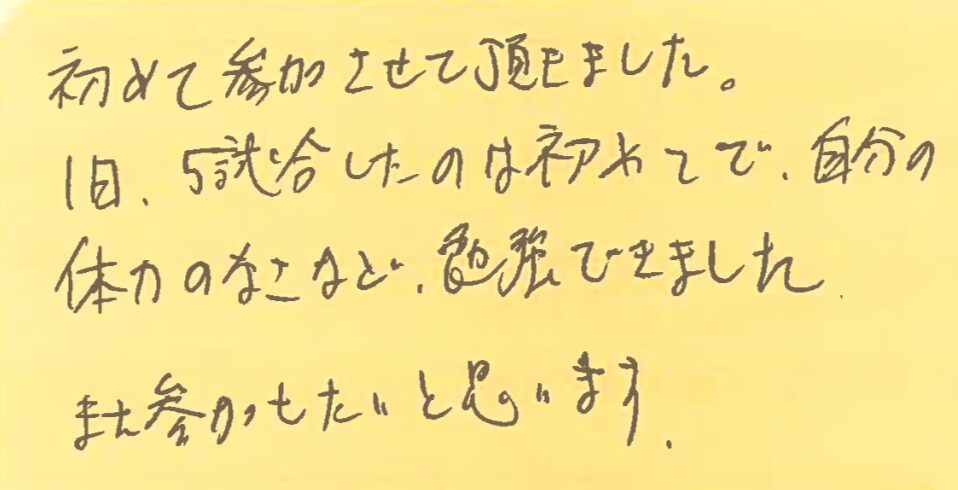 初めて参加させて頂きました。
1日、5試合したのは初めてで、自分の
体力のなさなど、勉強できました.
また参加もたいと思います.